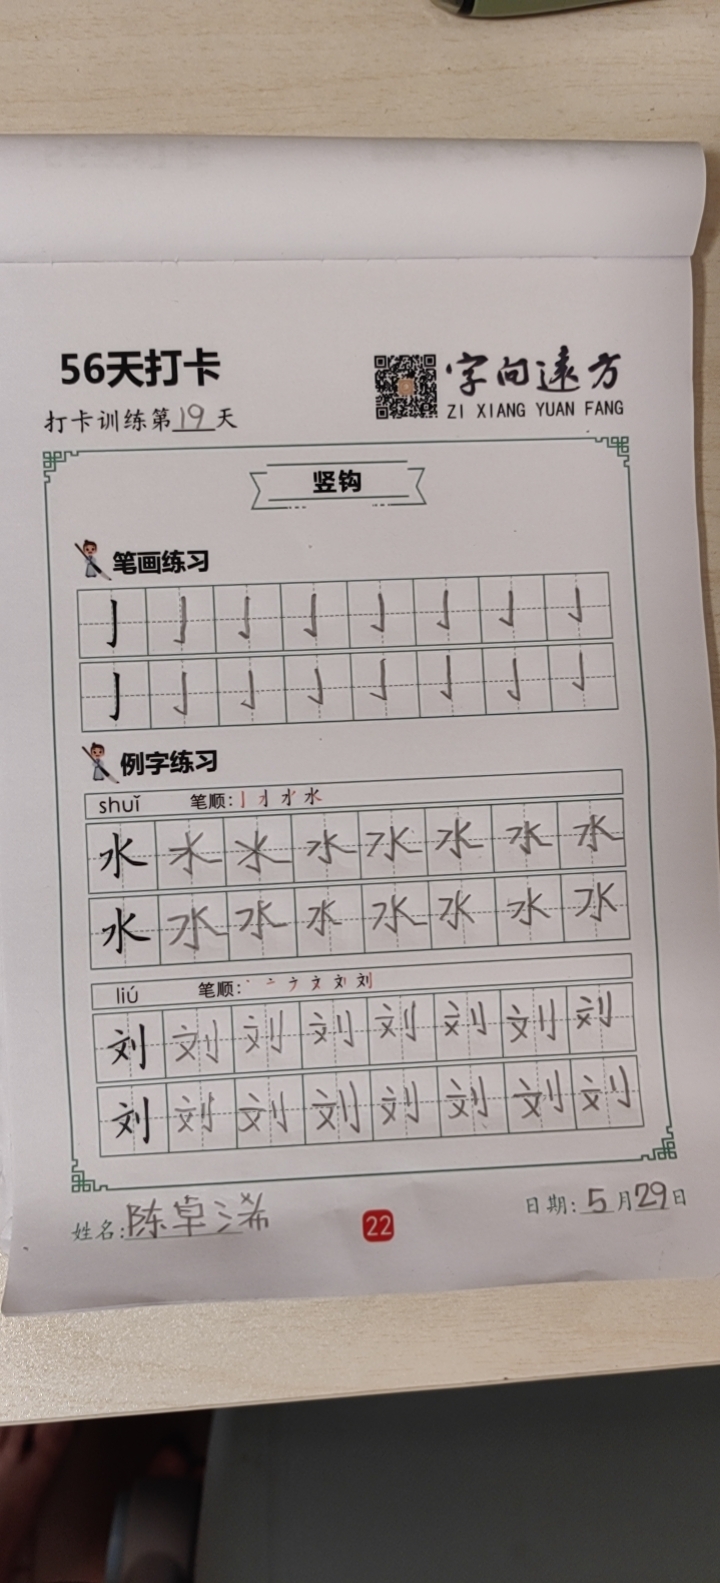 56天打卡
字向遠方
ZI XIANG YUAN FANG
打卡训练第19天
竖钩
笔画练习
亅亅亅亅亅亅亅亅
亅亅亅亅亅亅亅亅
例字练习
shuǐ 笔顺:
水水水水水水水水
水水水水水水水水
liú 笔顺:
刘刘刘刘刘刘刘刘
刘刘刘刘刘刘刘刘
姓名:陈卓浠
22
日期:5月29日